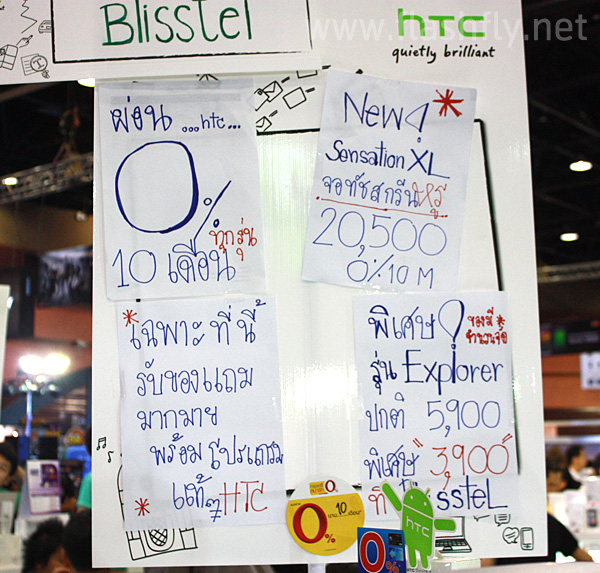 www.flashfly.net
Blisstel
hTC
quietly brilliant
ผ่อน ...htc...
0%
ทุกรุ่น
10 เดือน
New!*
Sensation XL
จอทัชสกรีนหรู
20,500
0% 10 M
*เฉพาะ ที่ นี้
รับของแถม
มากมาย
พร้อมโปรแกรม
* แท้ๆ HTC
พิเศษ! ของมี*
จำนวนจำกัด
รุ่น Explorer
ปกติ 5,900
พิเศษ "3,900"
ที่ BlissteL
0% นาน 10 เดือน
0%
hTC